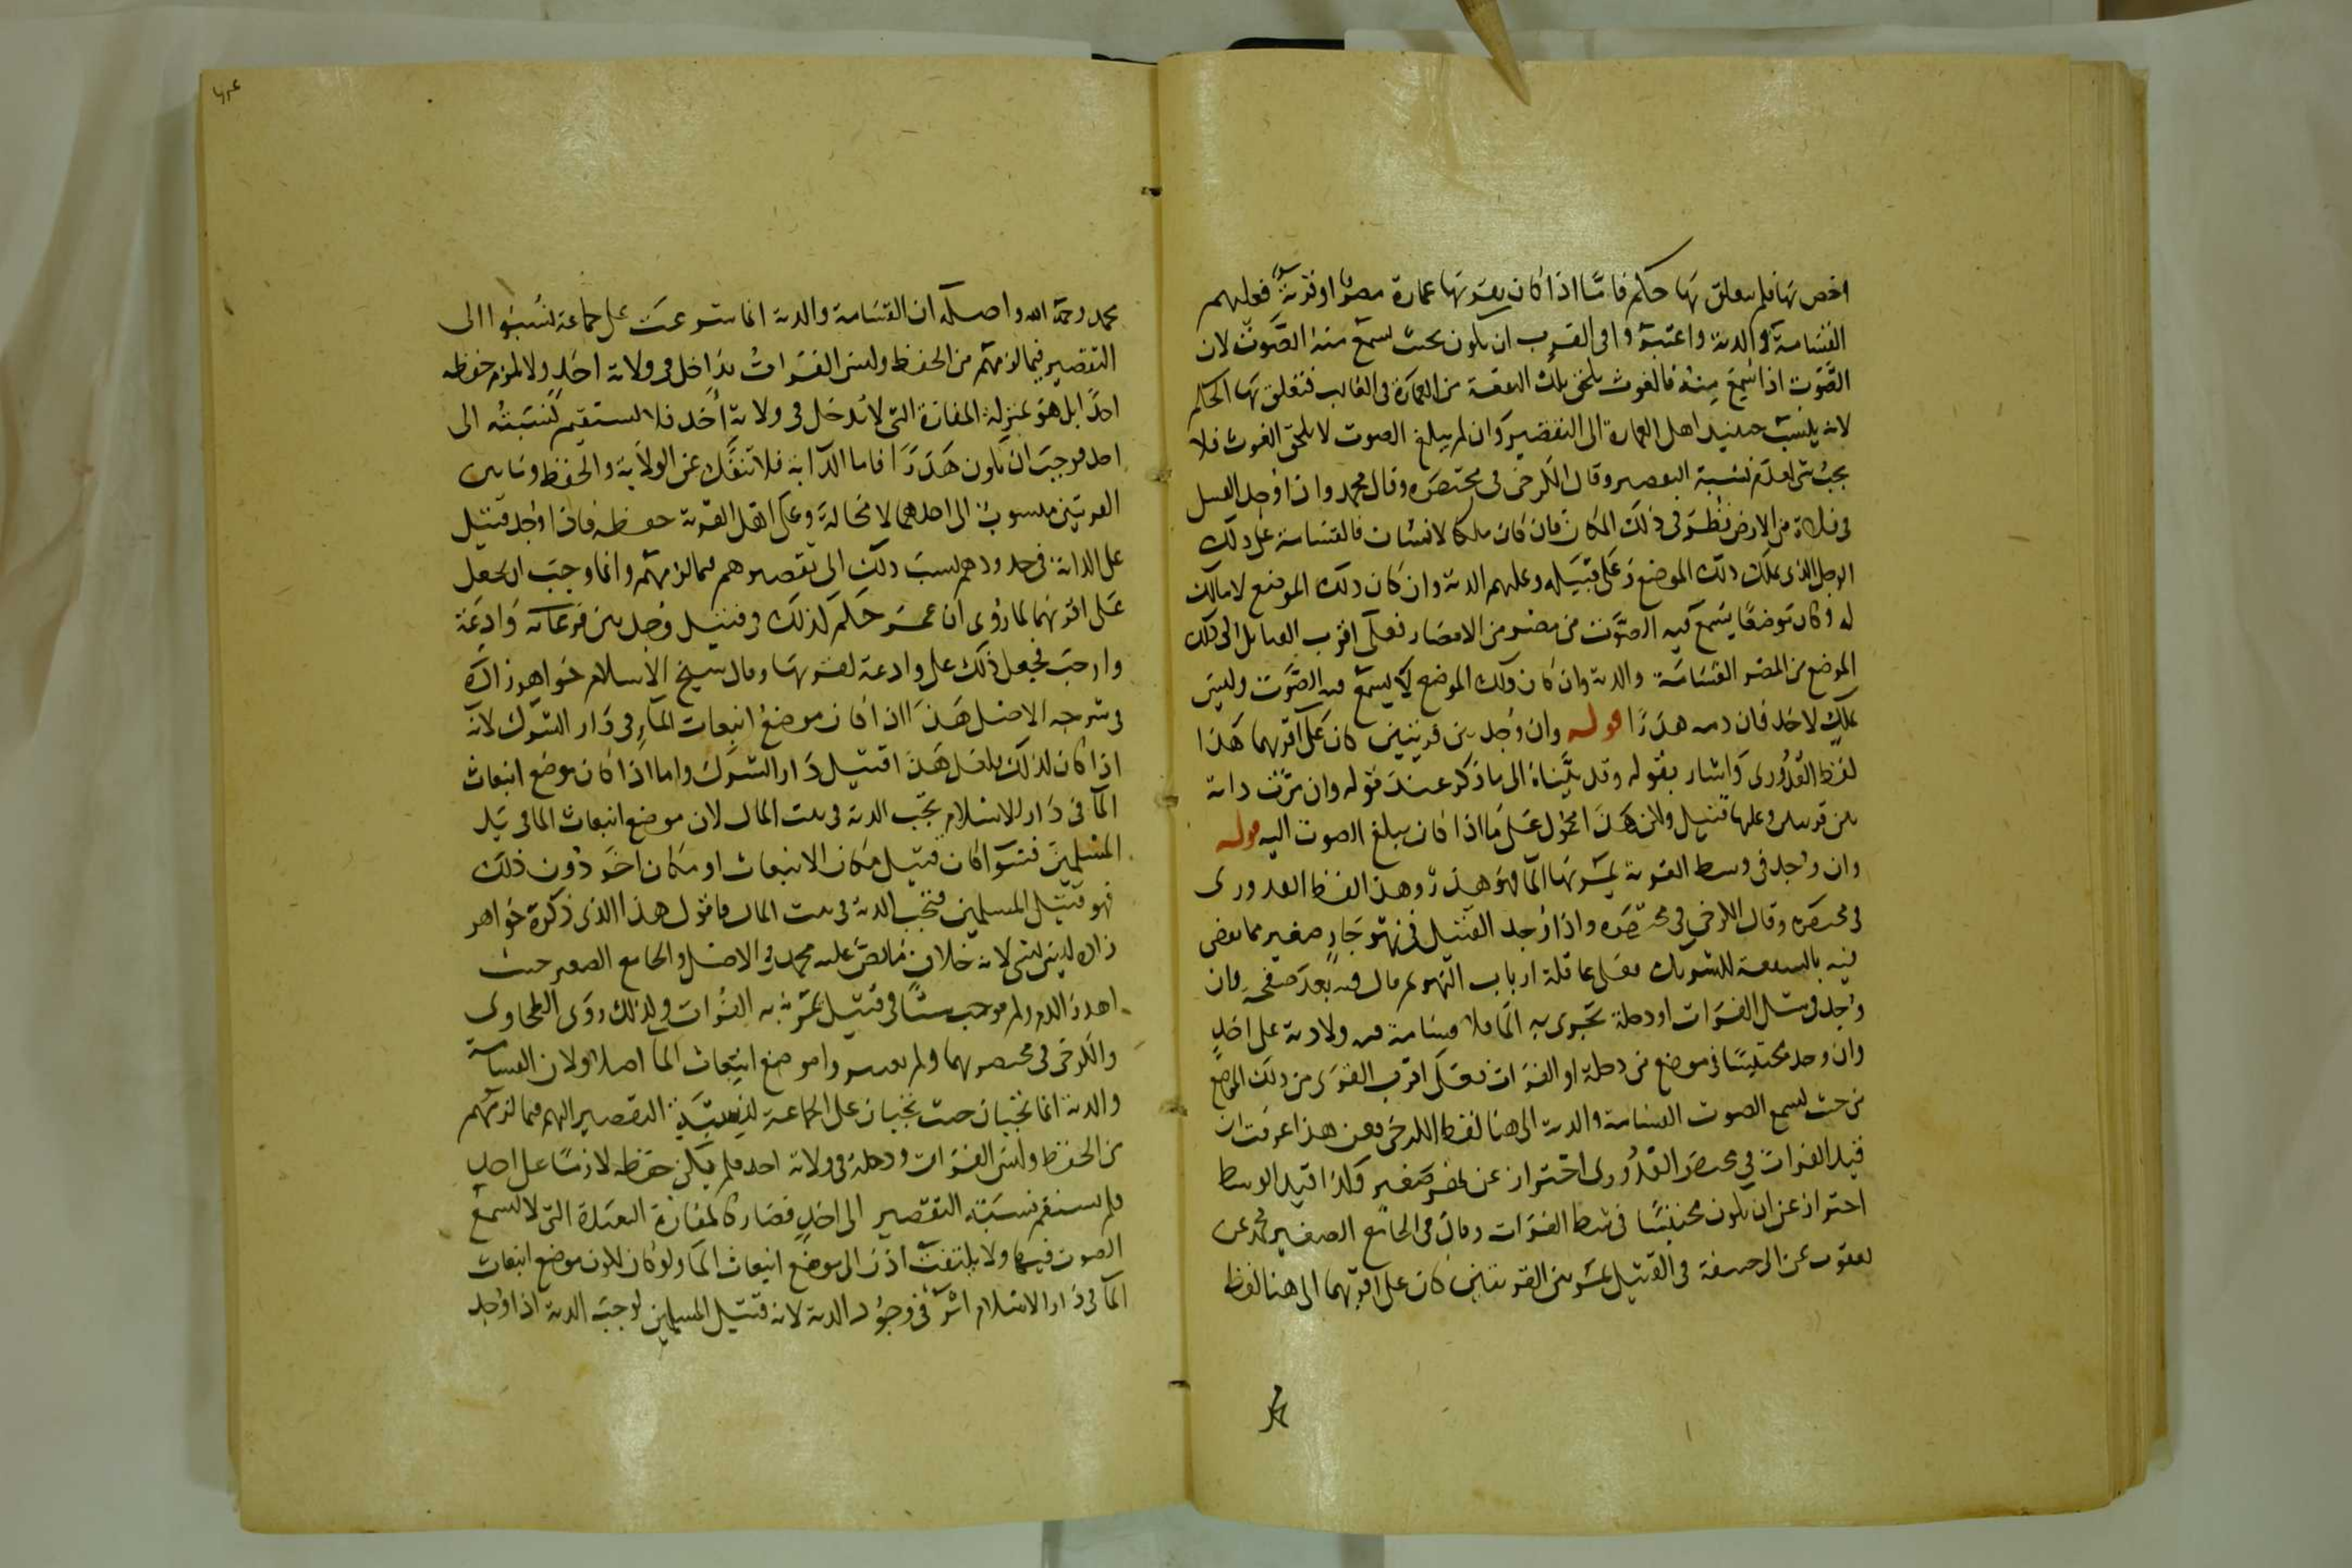 اخص بها فلم يتعلق بها حكم فامّا اذا كان بقربها عمارة مصرٌ او قريةٌ فعليهم
القسامة والدية واعتبروا في القرب ان يكون بحيث يسمع منه الصَّوت لان
الصَّوت اذا سُمِعَ مِنه فالغوث يلحق تلك البقعة من العمارة في الغالب فتعلق بها الحكم
لانه ينسب حينئذ اهل العمارة الى التقصير وان لم يبلغ الصوت لا يلحق الغوث فلا
يجب شي لعدم نسبة التقصير وقال الكرخي في مختصره وقال محمد واذا وُجد القتيل
في فلاة من الارض نظر في ذلك المكان فان كان ملكا لانسان فالقسامة على ذلك
الرجل الذي يملك ذلك الموضع وعلى قبيلته وعليهم الدية وان كان ذلك الموضع لا مالك
له وكان موضعًا يسمع فيه الصوت من مصر من الامصار فعلى اقرب القبايل الى ذلك
الموضع من المصر القسامة والدية وان كان ذلك الموضع لا يسمع فيه الصَّوت وليس
بملك لاحد فان دمه هدرًا قوله وان وُجد بين قريتين كان على اقربهما هذا
لفظ القُدُوري واشار بقوله وقد بيَّناه الى ما ذكر عند قوله وان مرّت دابة
بين قريتين وعليها قتيل ولكن هذا محمول على ما اذا كان يبلغ الصوت اليه قوله
وان وُجد في وسط الفرت يمر بها المآ فهو هدرٌ وهذا لفظ القدوري
في مختصره وقال الكرخي في مختصره واذا وُجد القتيل في نهر جارٍ صغير مما يقضى
فيه بالشفعة للشريك فعلى عاقلة ارباب النهر ثم قال فيه بعد صفحةٍ فان
وُجد في مثل الفرات او دجلة تجري به المآ فلا قسامة فيه ولا دية على احدٍ
وان وجد محتبسًا في موضع من دجلة او الفرات فعلى اقرب القرى من ذلك الموضع
من حيث يسمع الصوت القسامة والدية الى هنا لفظ الكرخي فعن هذا عرفت ان
قيد الفرات في مختصر القدوري احتراز عن نهر صغير وكذا قيد الوسط
احتراز عن ان يكون محتبسًا في شط الفرات وقال في الجامع الصغير محمد عن
يعقوب عن ابي حنيفة في القتيل يمر بين القريتين كان على اقربهما الى هنا لفظ
محمد رحمه الله واصله ان القسامة والدية انما شرعت على جماعة نُسِبُوا الى
التقصير فيما لزمهم من الحفظ وليس الفراتُ بداخل في ولاية احدٍ ولا يلزم حفظه
احدًا بل هو بمنزلة المفازة التي لا تدخل في ولاية احد فلا يستقيم نسبته الى
احد فوجب ان يكون هدرًا فاما الدابة فلا تنفك عن الولاية والحفظ وما بين
القريتين منسوب الى احدهما لا محالة وعلى اهل القرية حفظه فاذا وُجد قتيل
على الدابة في حدودهم يسب ذلك الى تقصيرهم فيما لزمهم وانما وجب ان يجعل
على اقربهما لما رُوي ان عمر حكم كذلك في قتيل وُجد بين وَادِعَة
وارحب فجعل ذلك على وادعة لقربها وقال شيخ الاسلام خواهر زاده
في شرحه الاصل هذا اذا كان موضعُ انبعاث المآءِ في دار الشرك لانه
اذا كان كذلك هذا قتيل دار الشرك واما اذا كان موضع انبعاث
المآ في دار الاسلام تجب الدية في بيت المال لان موضع انبعاث الما في يد
المسلمين فسوآ كان قتيل مكان الانبعاث او مكان اخر دُون ذلك
فهو قتيل المسلمين فتجب الدية في بيت المال فاقول هذا الذي ذكره خواهر
زاده ليس بشي لانه خلاف ما نص عليه محمد في الاصل والجامع الصغير حيث
اهدر الدم ولم يوجب شيًا في قتيل يمر به الفرات وكذلك روى الطحاوي
والكرخي في مختصريهما ولم يعتبروا موضع انبعاث المآ اصلا ولان القسامة
والدية انما تجبان حيث تجبان على الجماعة لنسبة التقصير اليهم فيما لزمهم
من الحفظ وليس الفرات ودجلة في ولاية احد فلم يكن حفظه لازمًا على احدٍ
فلم يستقم نسبة التقصير الى احدٍ فصار كالمفازة البعيدة التي لا يسمع
الصوت فيها ولا يلتفت اذن الى موضع انبعاث المآ ولو كان لكون موضع انبعاث
المآ في دار الاسلام اثرٌ في وجُوب الدية لانه قتيل المسلمين لوجبت الدية اذا وُجد